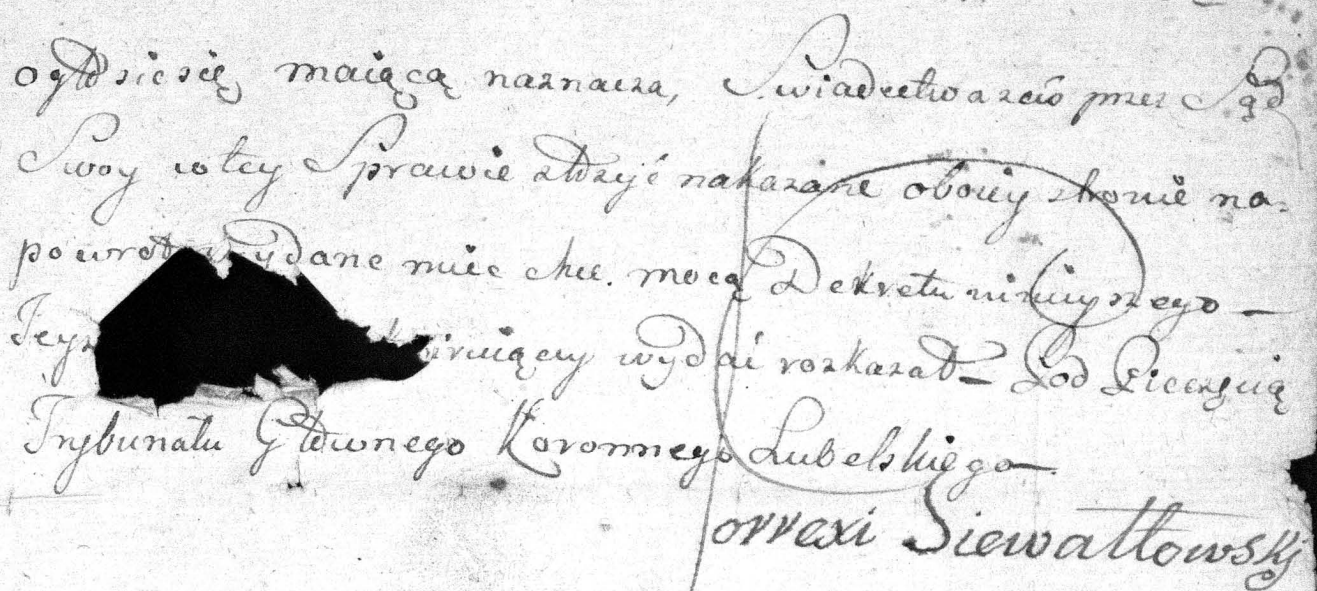 ogłosić się maiącą naznacza, Swiadectwa zaś przez Sąd
Swoy w tey Sprawie złożyć nakazane obowey stronie na-
powrot wydane mieć chce. mocą Dekretu ninieyszego —
wydać rozkazał — Pod Pieczęcią
Trybunału Głównego Koronnego Lubelskiego —
Correxi Siewałłowskj